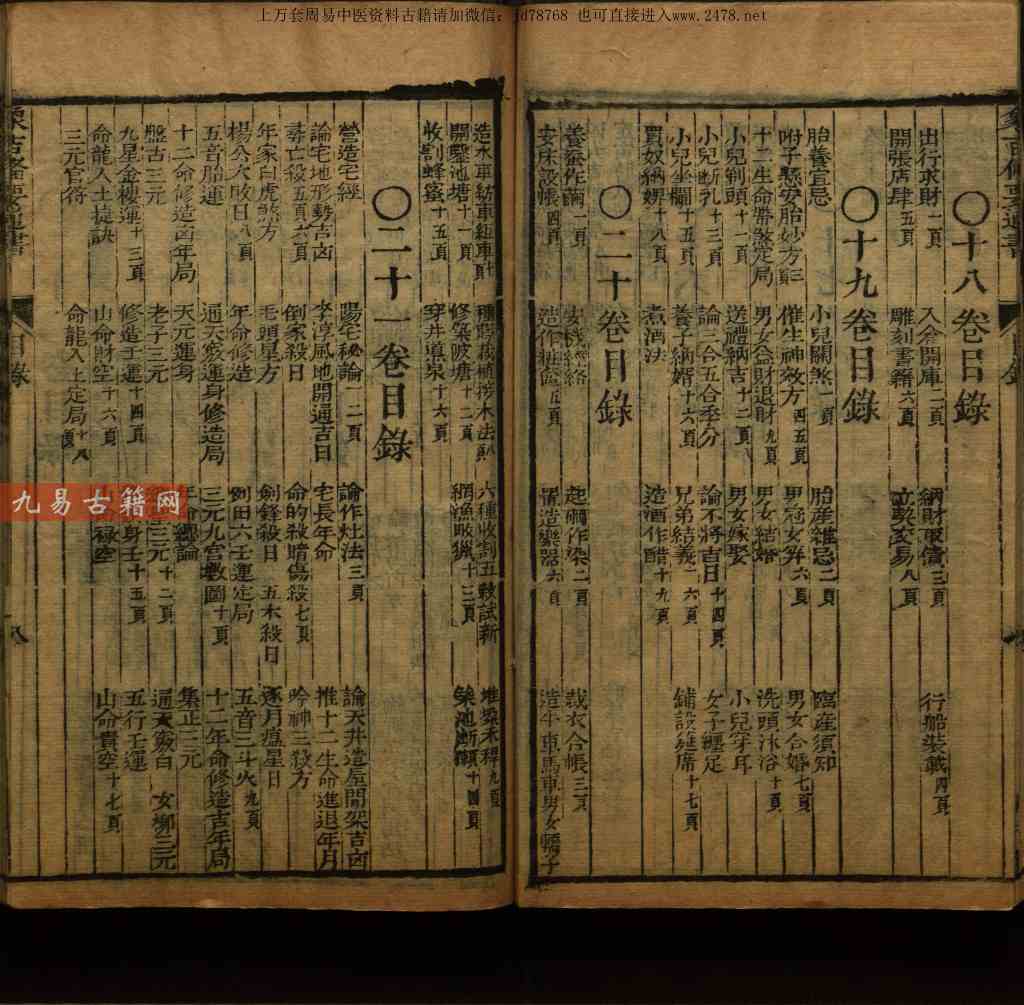 上万套周易中医资料古籍请加微信：jd78768 也可直接进入www.2478.net
〇十八卷目錄
出行求財一頁 入倉開庫二頁 納財取債三頁 行船裝載四頁
開張店肆五頁 雕刻書籍六頁 立契交易八頁
〇十九卷目錄
胎養宜忌 小兒關煞一頁 胎產雜忌二頁 臨產須知
附子懸安胎妙方三 催生神效方四五頁 男冠女笄六頁 男女合婚七頁
十二生命帶煞定局 男女益財退財九頁 男女結婚 洗頭沐浴十頁
小兒剃頭十一頁 送禮納吉十二頁 男女嫁娶 小兒穿耳
小兒斷乳十三頁 論三合五合季分 論不將吉日十四頁 女子纏足
小兒坐欄十五頁 養子納婿十六頁 兄弟結義一六頁 鋪設筵席十七頁
買奴納婢十八頁 煮酒法 造酒作醋十九頁
〇二十卷目錄
養蠶作繭一頁 安機經絡 起碙作染二頁 裁衣合帳三頁
安床設帳四頁 造作粧奩五頁 置造樂器六頁 造牛車馬車男女轎子
造水車紡車紐車十頁 六種收割五穀試新
開鑿池塘十一頁 修築陂塘十二頁 網漁畋獵十三頁 築池斷瀨十四頁
收割蜂蜜十五頁 穿井導泉十六頁
〇二十一卷目錄
營造宅經 陽宅秘論二頁 論作灶法三頁 論天井造屋間架吉凶
論宅地形勢吉凶 李淳風地開通吉日 宅長年命 推十二生命進退年月
尋亡殺五頁六頁 倒家殺日 命的殺晴傷殺七頁 吟神三殺方
年家白虎煞方 毛頭星方 劍鋒殺日 五木殺日 逐月瘟星日
楊公欠敗日八頁 年命修造 例田六壬運定局 五音三斗火九頁
五音胎運 通天竅運身修造局 三元九宮數圖十頁 十二年命修造吉年局
十二命修造凶年局 天元運身 總論 集正三元
盤古三元 老子三元 三元十二頁 通天竅白 女鄉三元
九星金樓運十三頁 修造壬運十四頁 身壬十五頁 五行壬運
命龍入土捷訣 山命財空十六頁 祿空 山命貴空十七頁
三元官符 命龍入土定局十八頁
目錄
九易古籍网